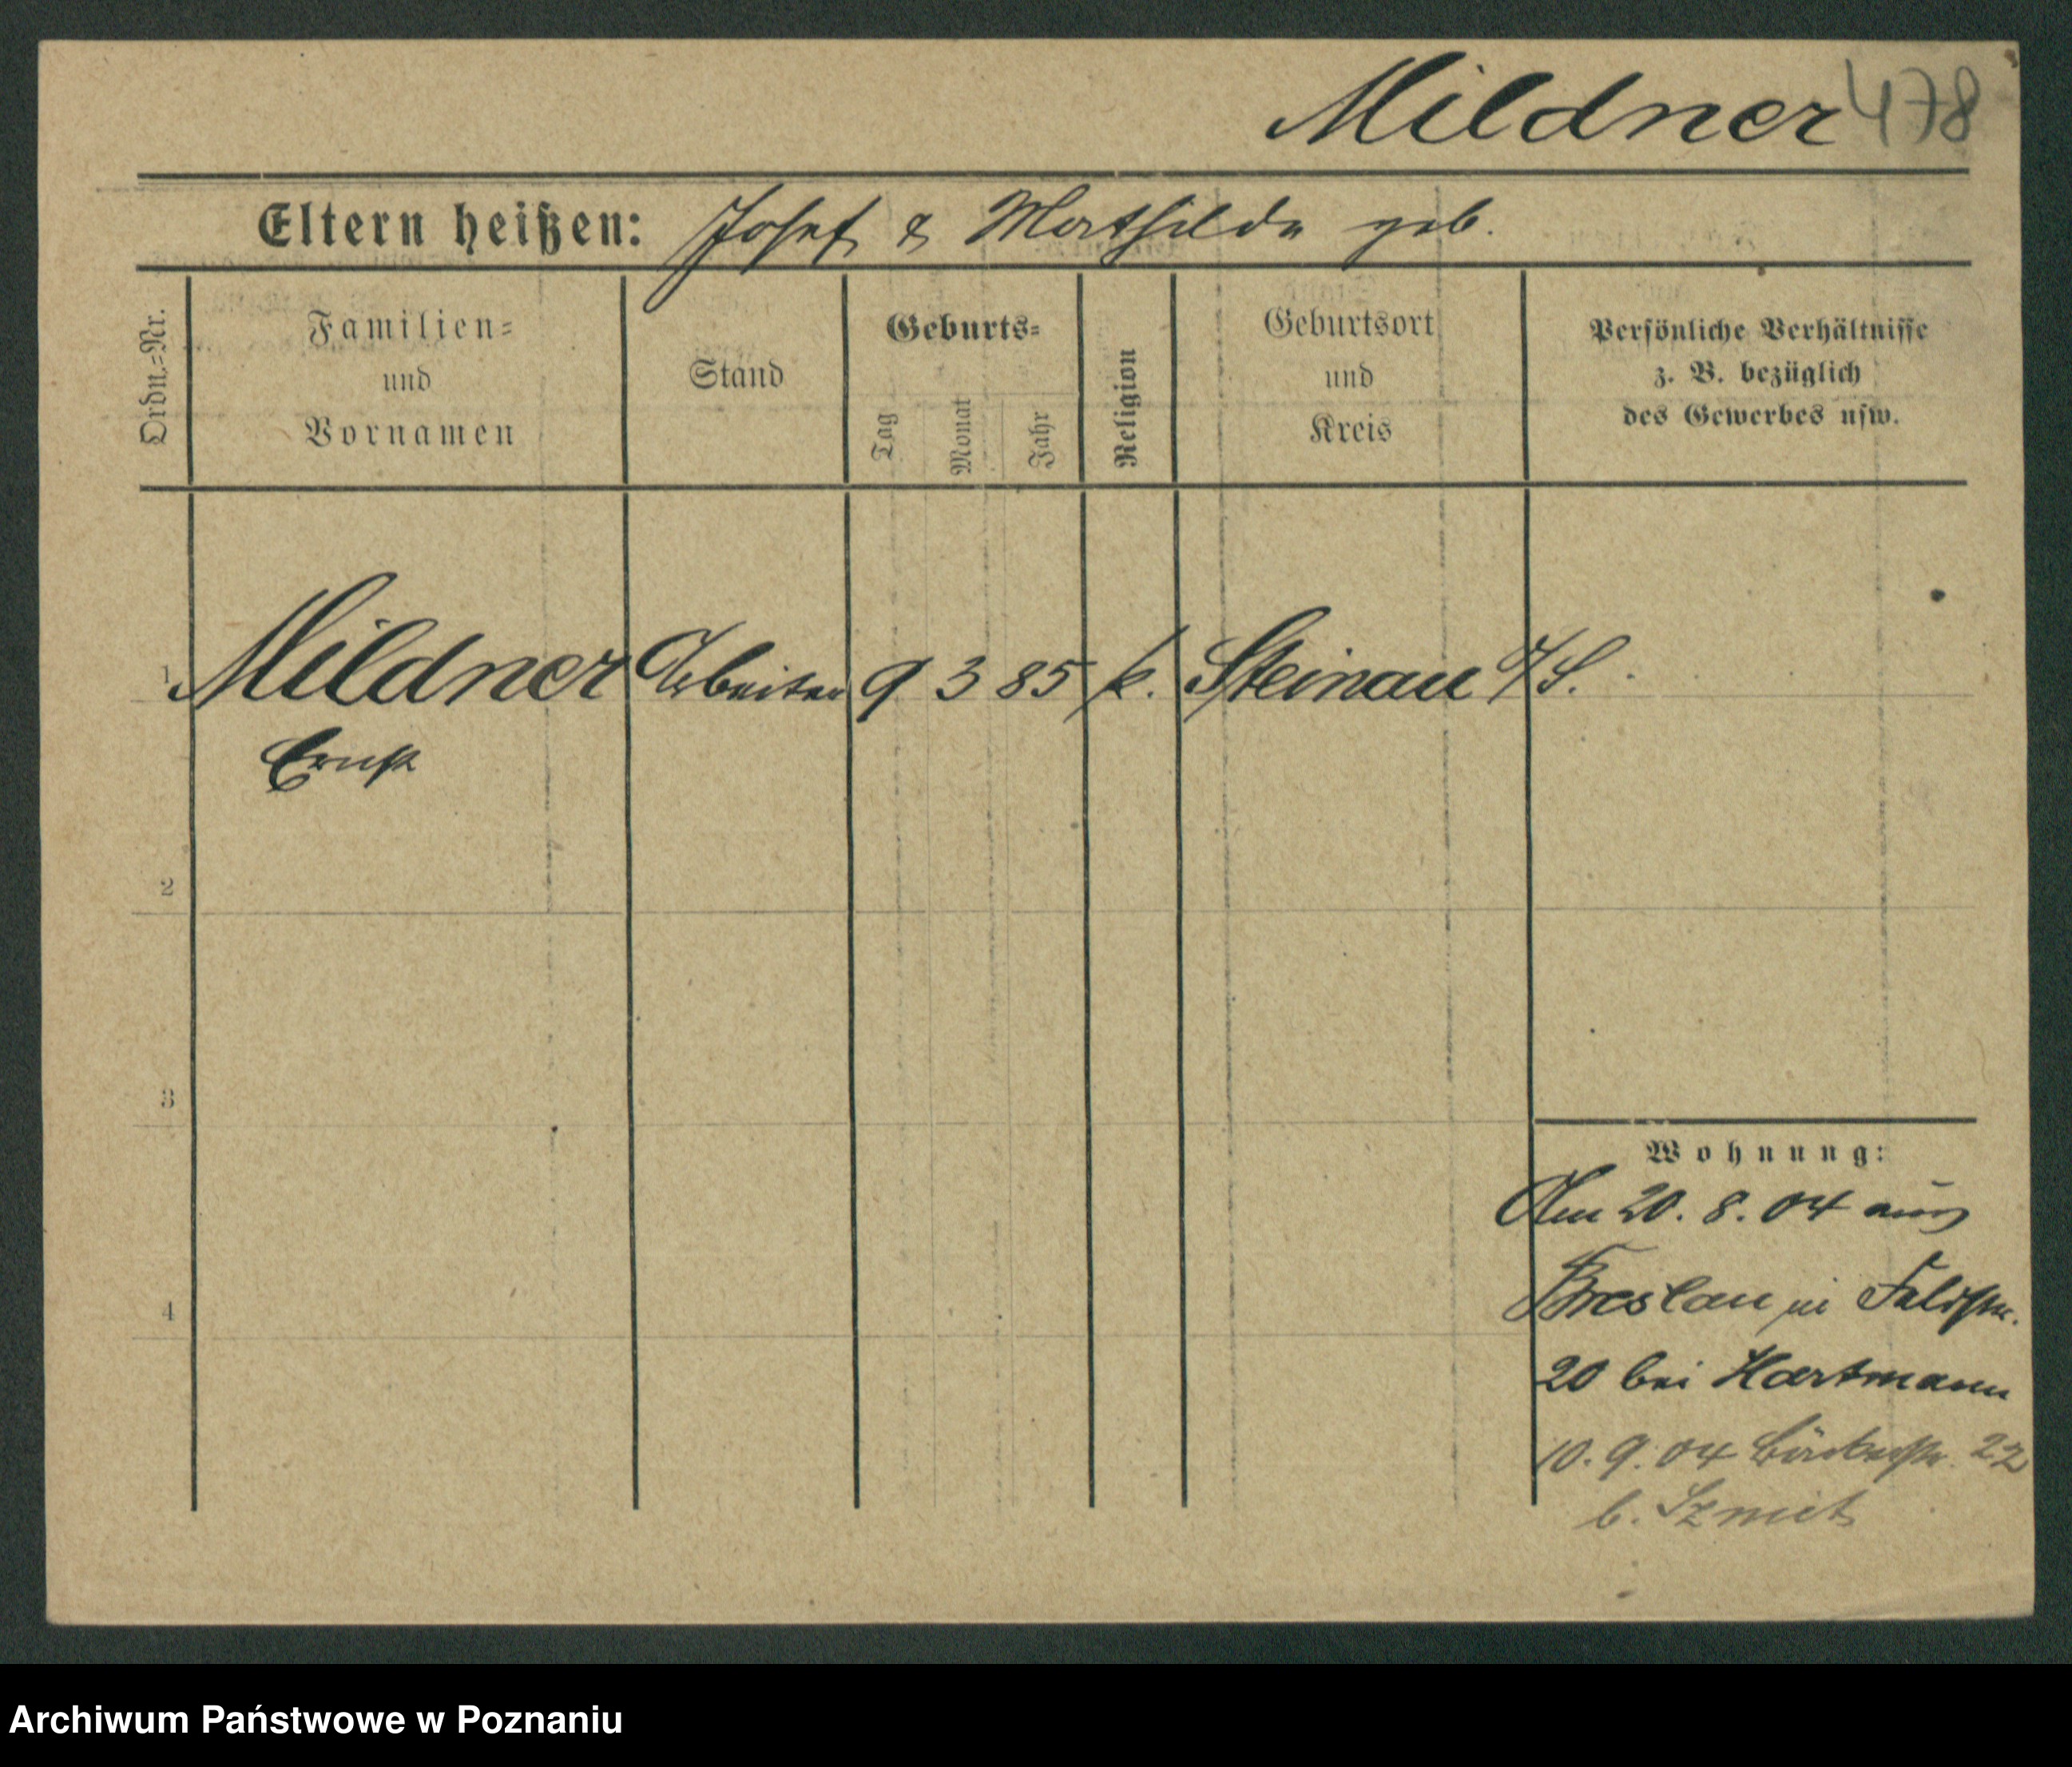 Mildner 478
Eltern heißen: Josef & Mathilde geb.
Ordn.=Nr.
Familien=
und
Vornamen
Stand
Geburts=
Tag
Monat
Jahr
Religion
Geburtsort
und
Kreis
Persönliche Verhältnisse
z. B. bezüglich
des Gewerbes usw.
1 Mildner Arbeiter 9 3 85 k. Steinau O/S.
Ernst
2
3
4
Wohnung:
Am 20. 8. 04 aus
Breslau in Feldstr.
20 bei Hartmann
10. 9. 04 22
b. Szmict
Archiwum Państwowe w Poznaniu